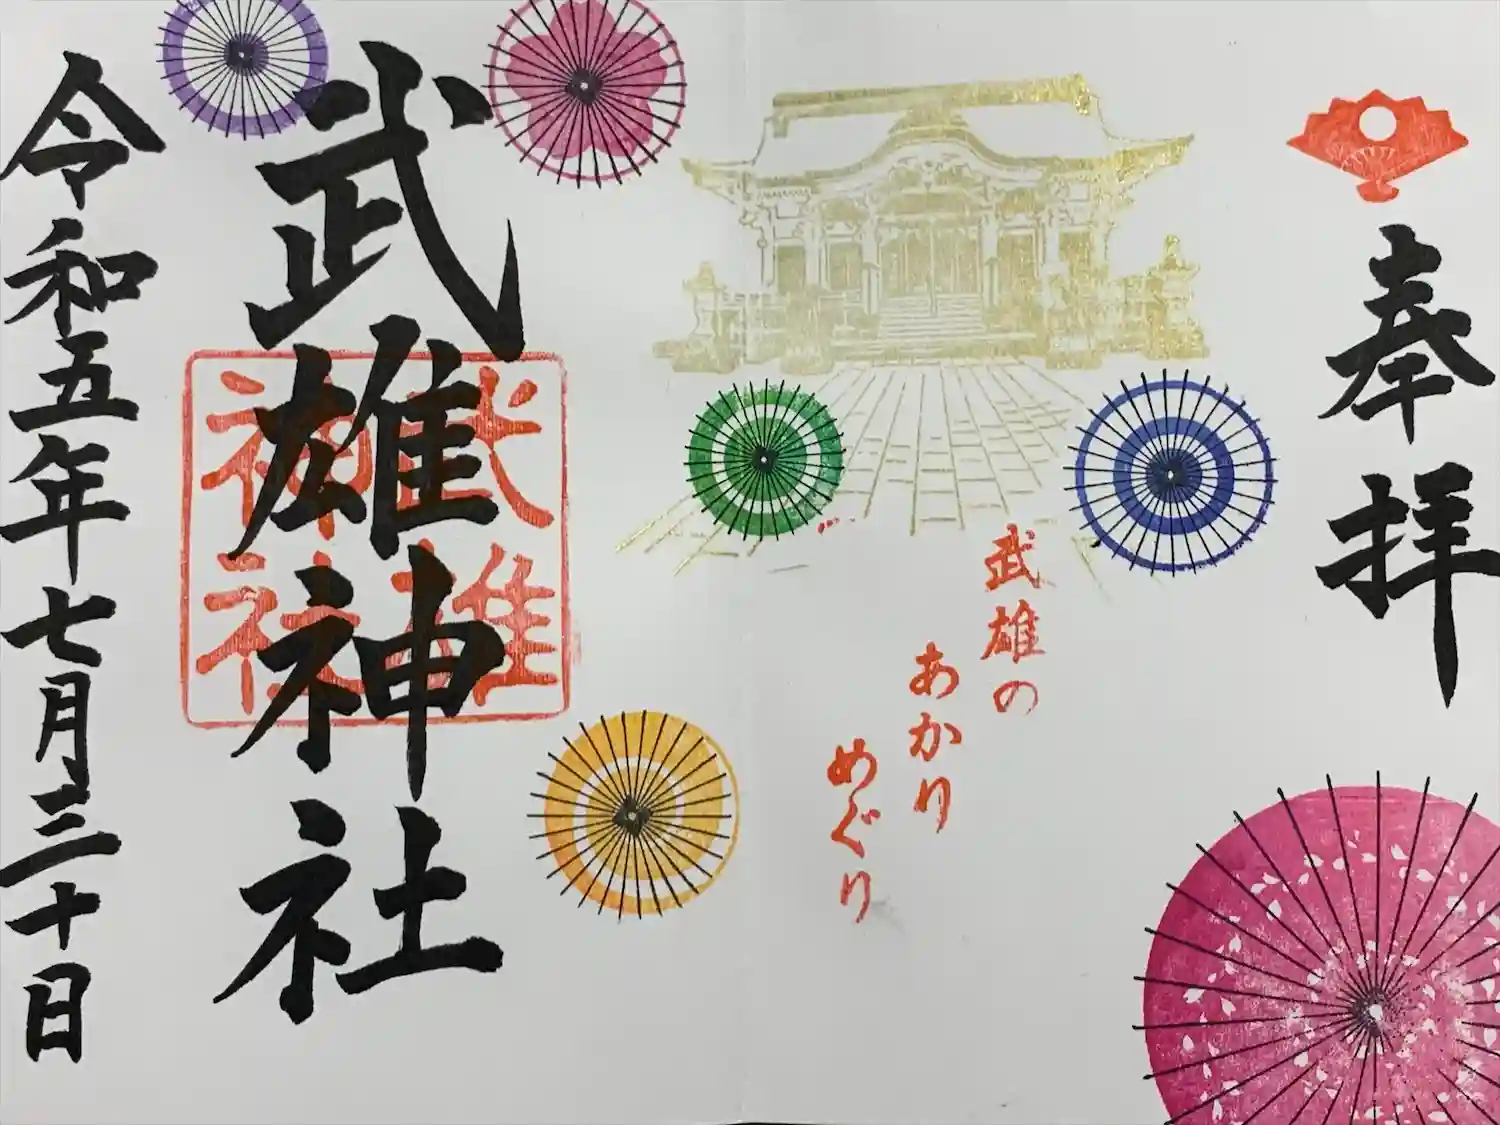 奉拝
武雄の
あかり
めぐり
武雄神社
武雄
神社
令和五年七月三十日